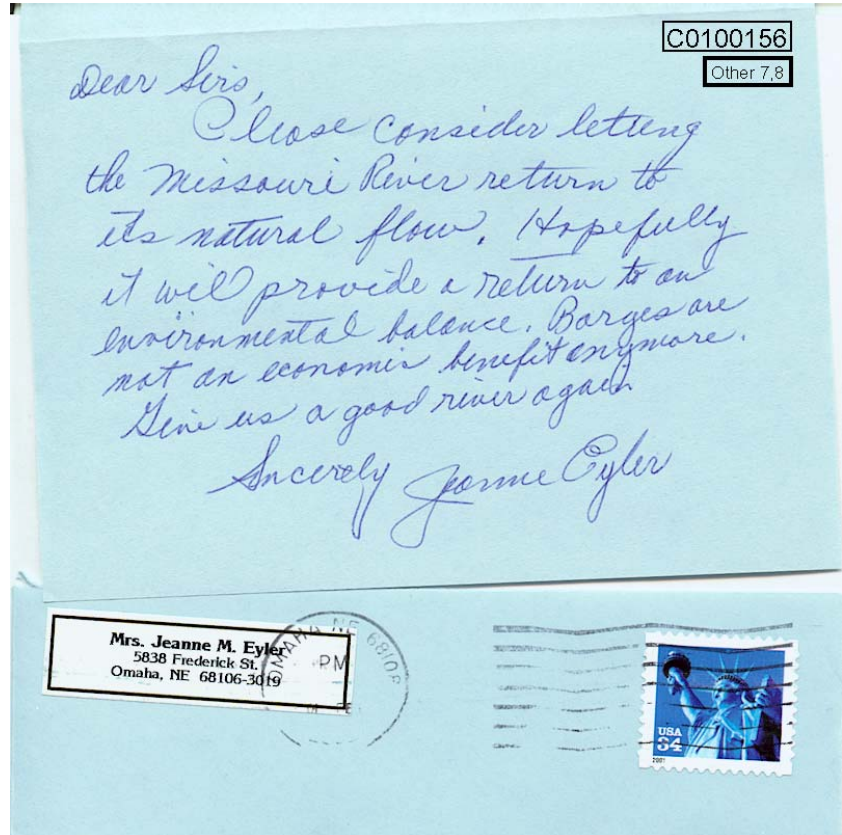 C0100156
Other 7,8
Dear Sirs,
Please consider letting
the Missouri River return to
its natural flow. Hopefully
it will provide a return to an
environmental balance. Barges are
not an economic benefit anymore.
Give us a good river again
Sincerely Jeanne Eyler
Mrs. Jeanne M. Eyler
5838 Frederick St.
Omaha, NE 68106-3019
OMAHA NE 68108
PM
USA
34
2001